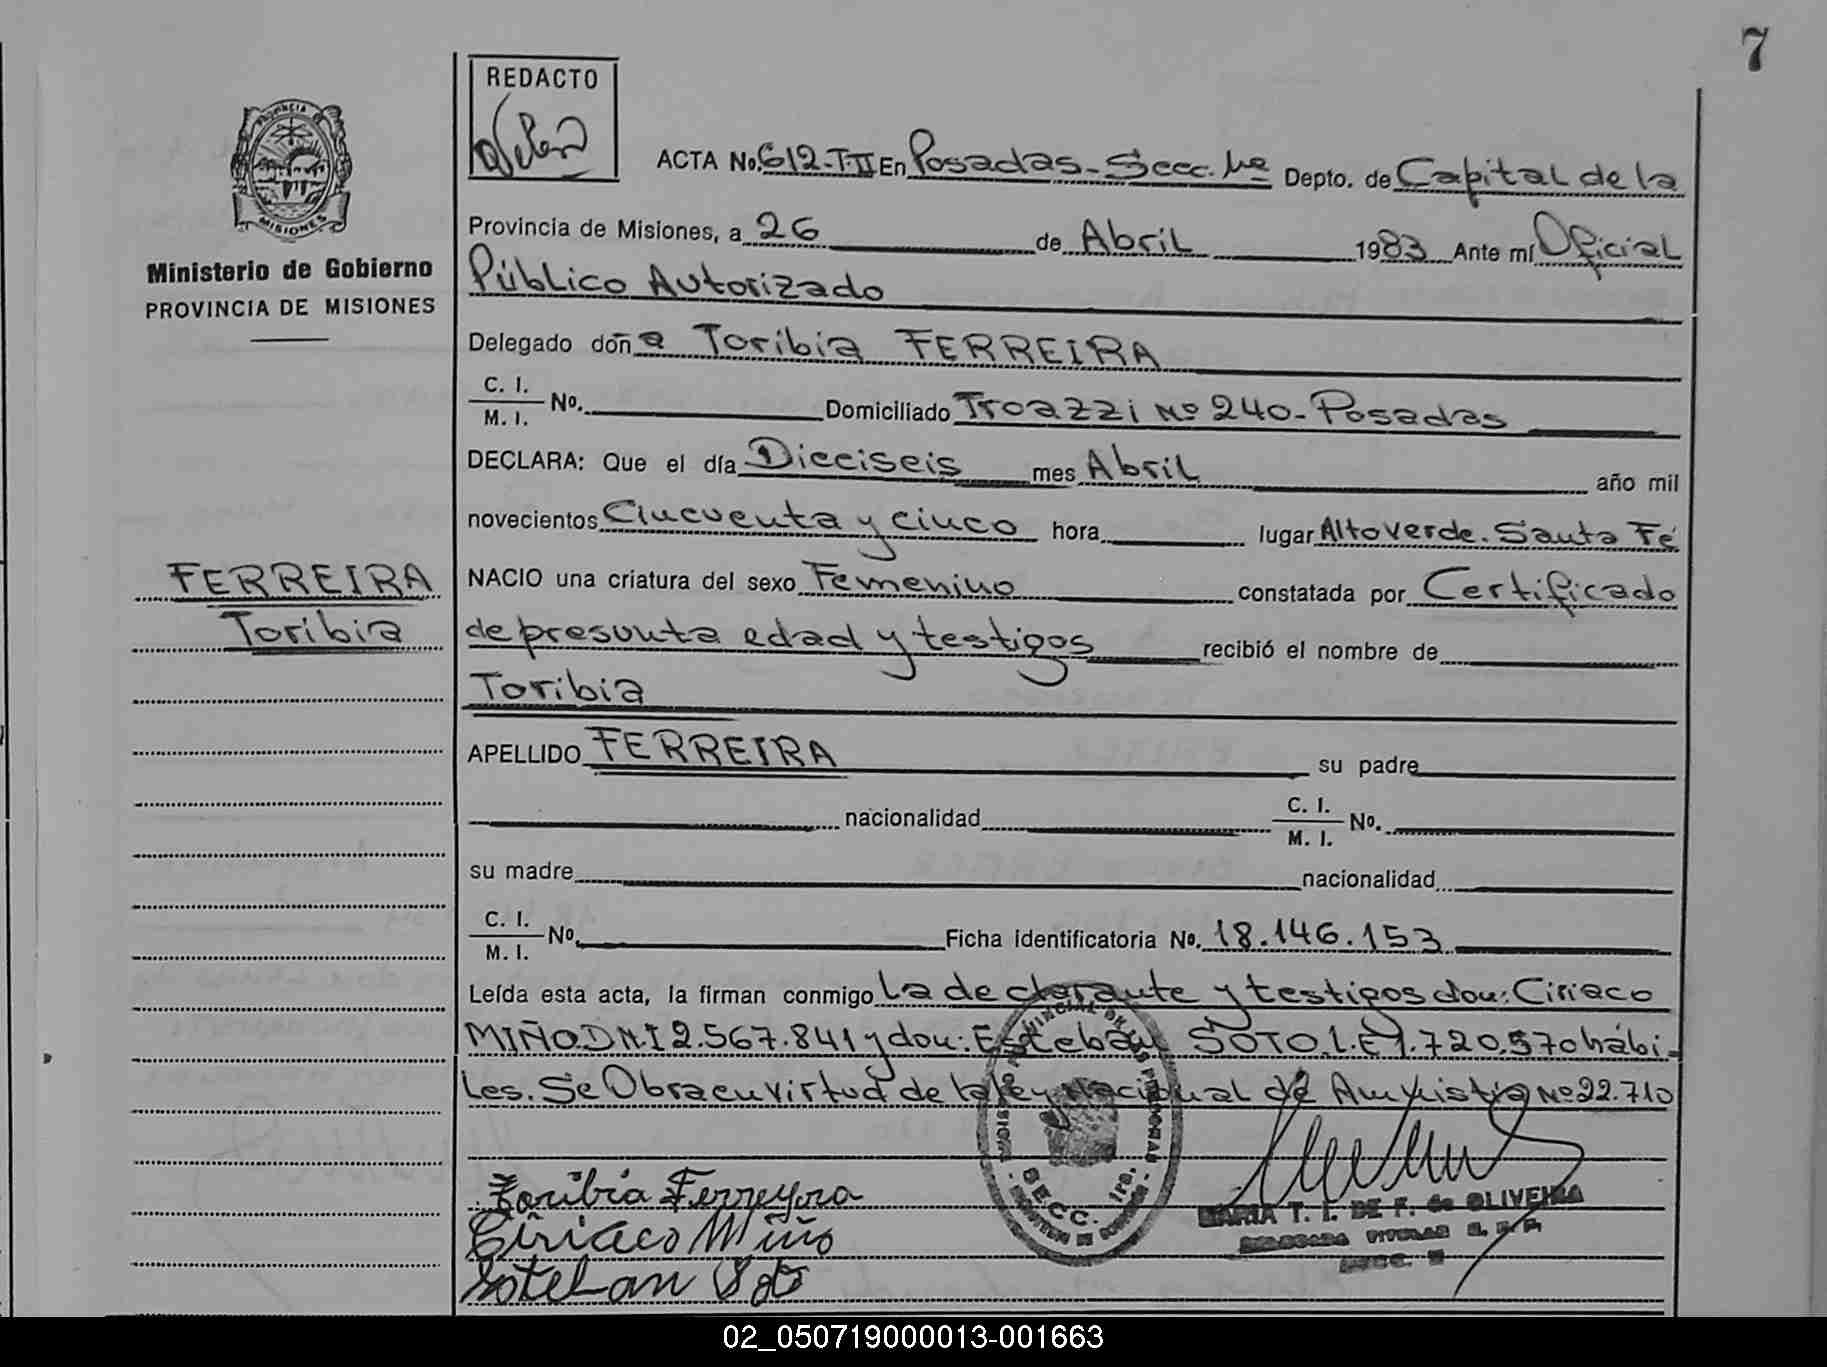 7
REDACTO
PROVINCIA
MISIONES
Ministerio de Gobierno
PROVINCIA DE MISIONES
FERREIRA
Toribia
ACTA No. 612-T-II En Posadas-Secc. 1ra Depto. de Capital de la
Provincia de Misiones, a 26 de Abril 1983 Ante mí Oficial
Público Autorizado
Delegado doña Toribia FERREIRA
C. I.
M. I. No. Domiciliado Troazzi Nº 240-Posadas
DECLARA: Que el día Dieciseis mes Abril año mil
novecientos Cincuenta y cinco hora lugar Alto Verde. Santa Fé
NACIO una criatura del sexo Femenino constatada por Certificado
de presunta edad y testigos recibió el nombre de
Toribia
APELLIDO FERREIRA su padre
nacionalidad C. I.
M. I. No.
su madre nacionalidad
C. I.
M. I. No. Ficha identificatoria No. 18.146.153
Leída esta acta, la firman conmigo la declarante y testigos don: Ciriaco
MIÑO D.N.I 2.567.841 y don: Esteban SOTO. L.E 1.720.570 hábi-
les. Se Obra en virtud de la ley Nacional de Amnistia Nº 22.710
Toribia Ferreyra
Ciriaco Miño
Esteban Soto
SECC. 1ra.
MARIA T. I. DE F. de OLIVEIRA
DELEGADA TITULAR
02_050719000013-001663